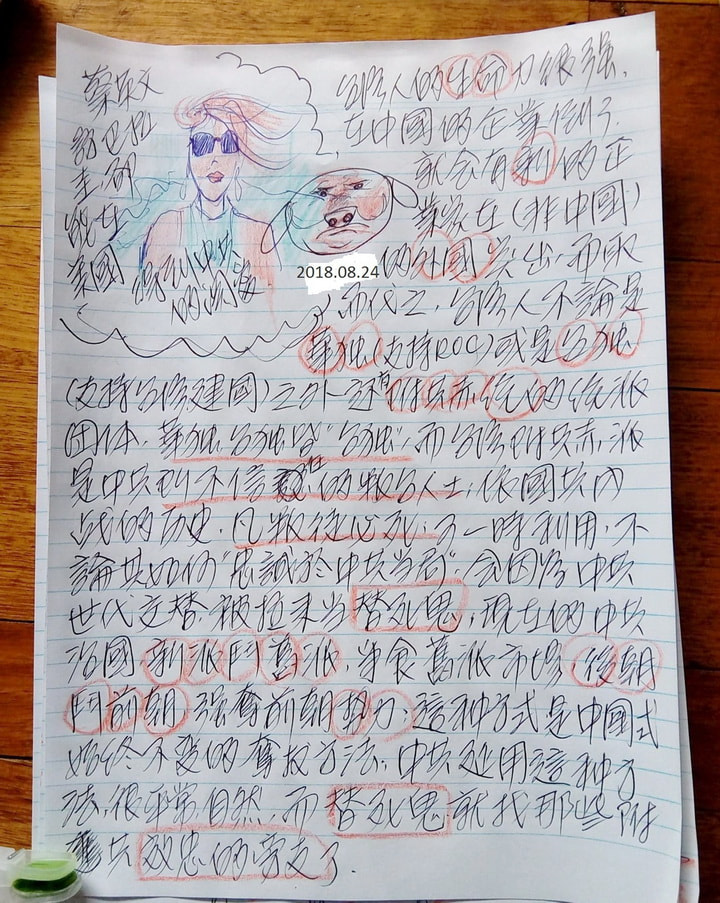 蔡英文
訪巴拉
圭，都
能在
美國
得到中共
的関愛
2018.08.24
台湾人的生命力很强，
在中國的企業倒了，
就会有利的企
業家在(非中國)
的外國 而取
而代之，台湾人不論是
華独(支持ROC)或是台独
(支持台湾建國)之外，还有附共赤统的统派
団体，華独、台独皆"台独"，而台湾附共赤派
是中共 不信 的叛台人士，依國共內
战的历史，凡叛徒必死；于一時利用，不
論其如何"忠誠於中共当局"，会因為中共
世代交替，被拉来当替死鬼，現在的中共
治國，新派鬥舊派，争食舊派市場，後朝
鬥前朝，强奪前朝势力；這种方式是中國式
始終不变的奪权方法，中共延用這种方
法，很平常自然，而替死鬼就找那些附
共效忠的 了。